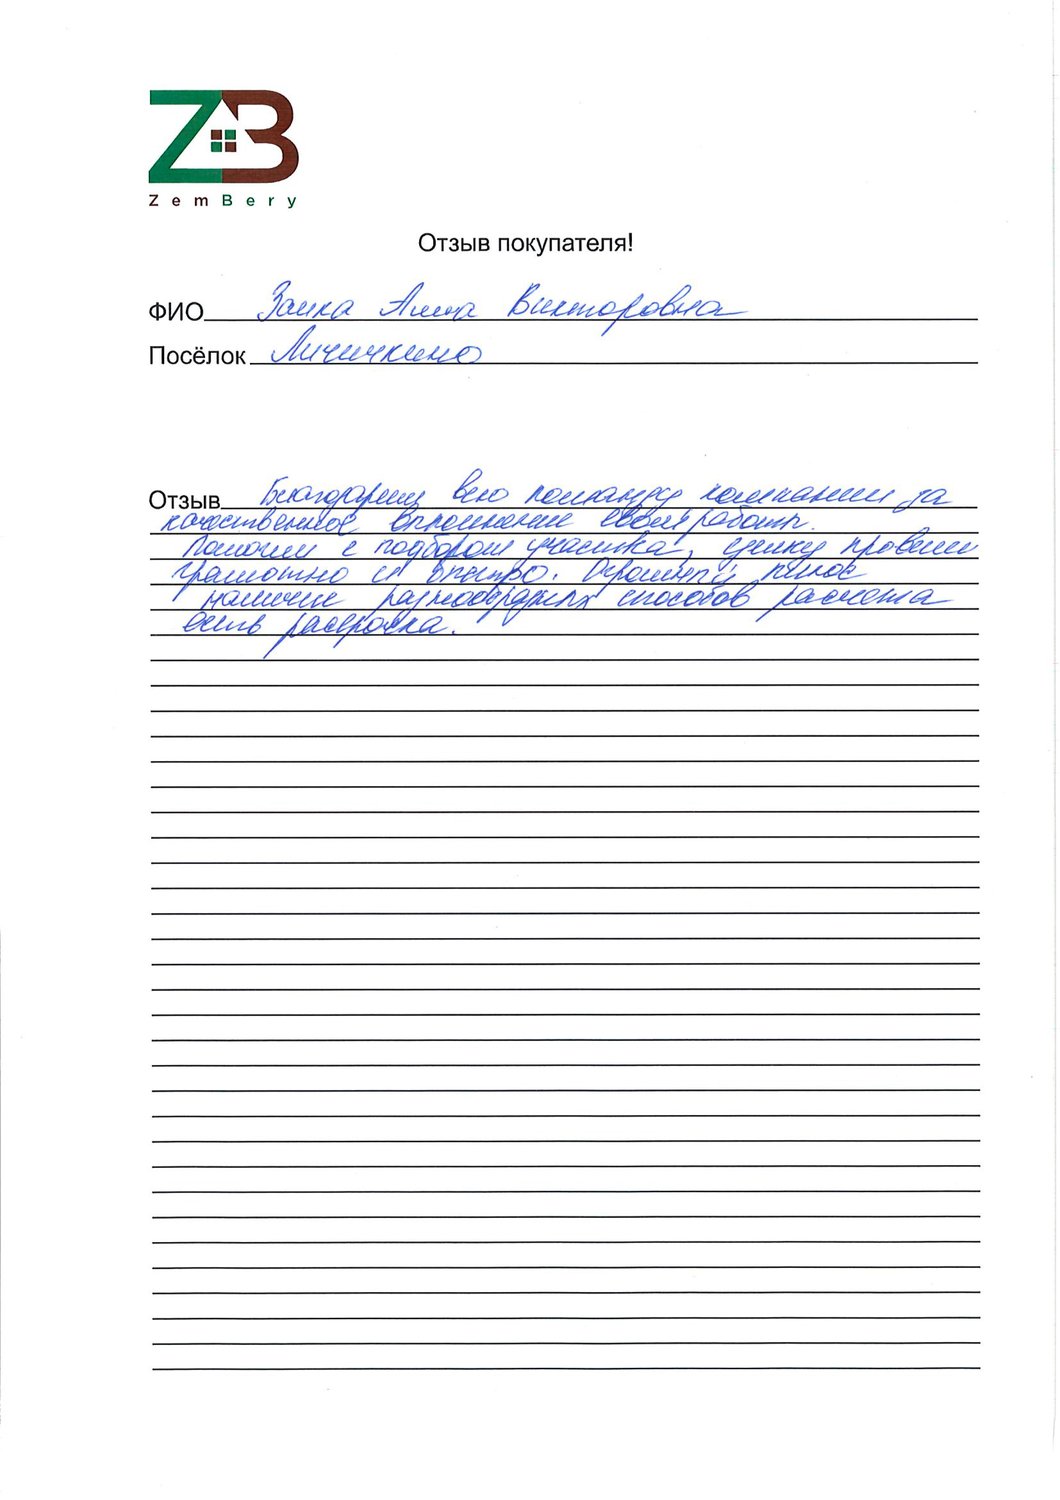 ZB
ZemBery
Отзыв покупателя!
ФИО Заика Анна Викторовна
Посёлок Личичкино
Отзыв Благодарим всю команду компании за
качественное выполнение своей работы.
Помогли с подбором участка, сделку провели
грамотно и быстро. Огромный плюс
наличие разнообразных способов расчета
есть рассрочка.